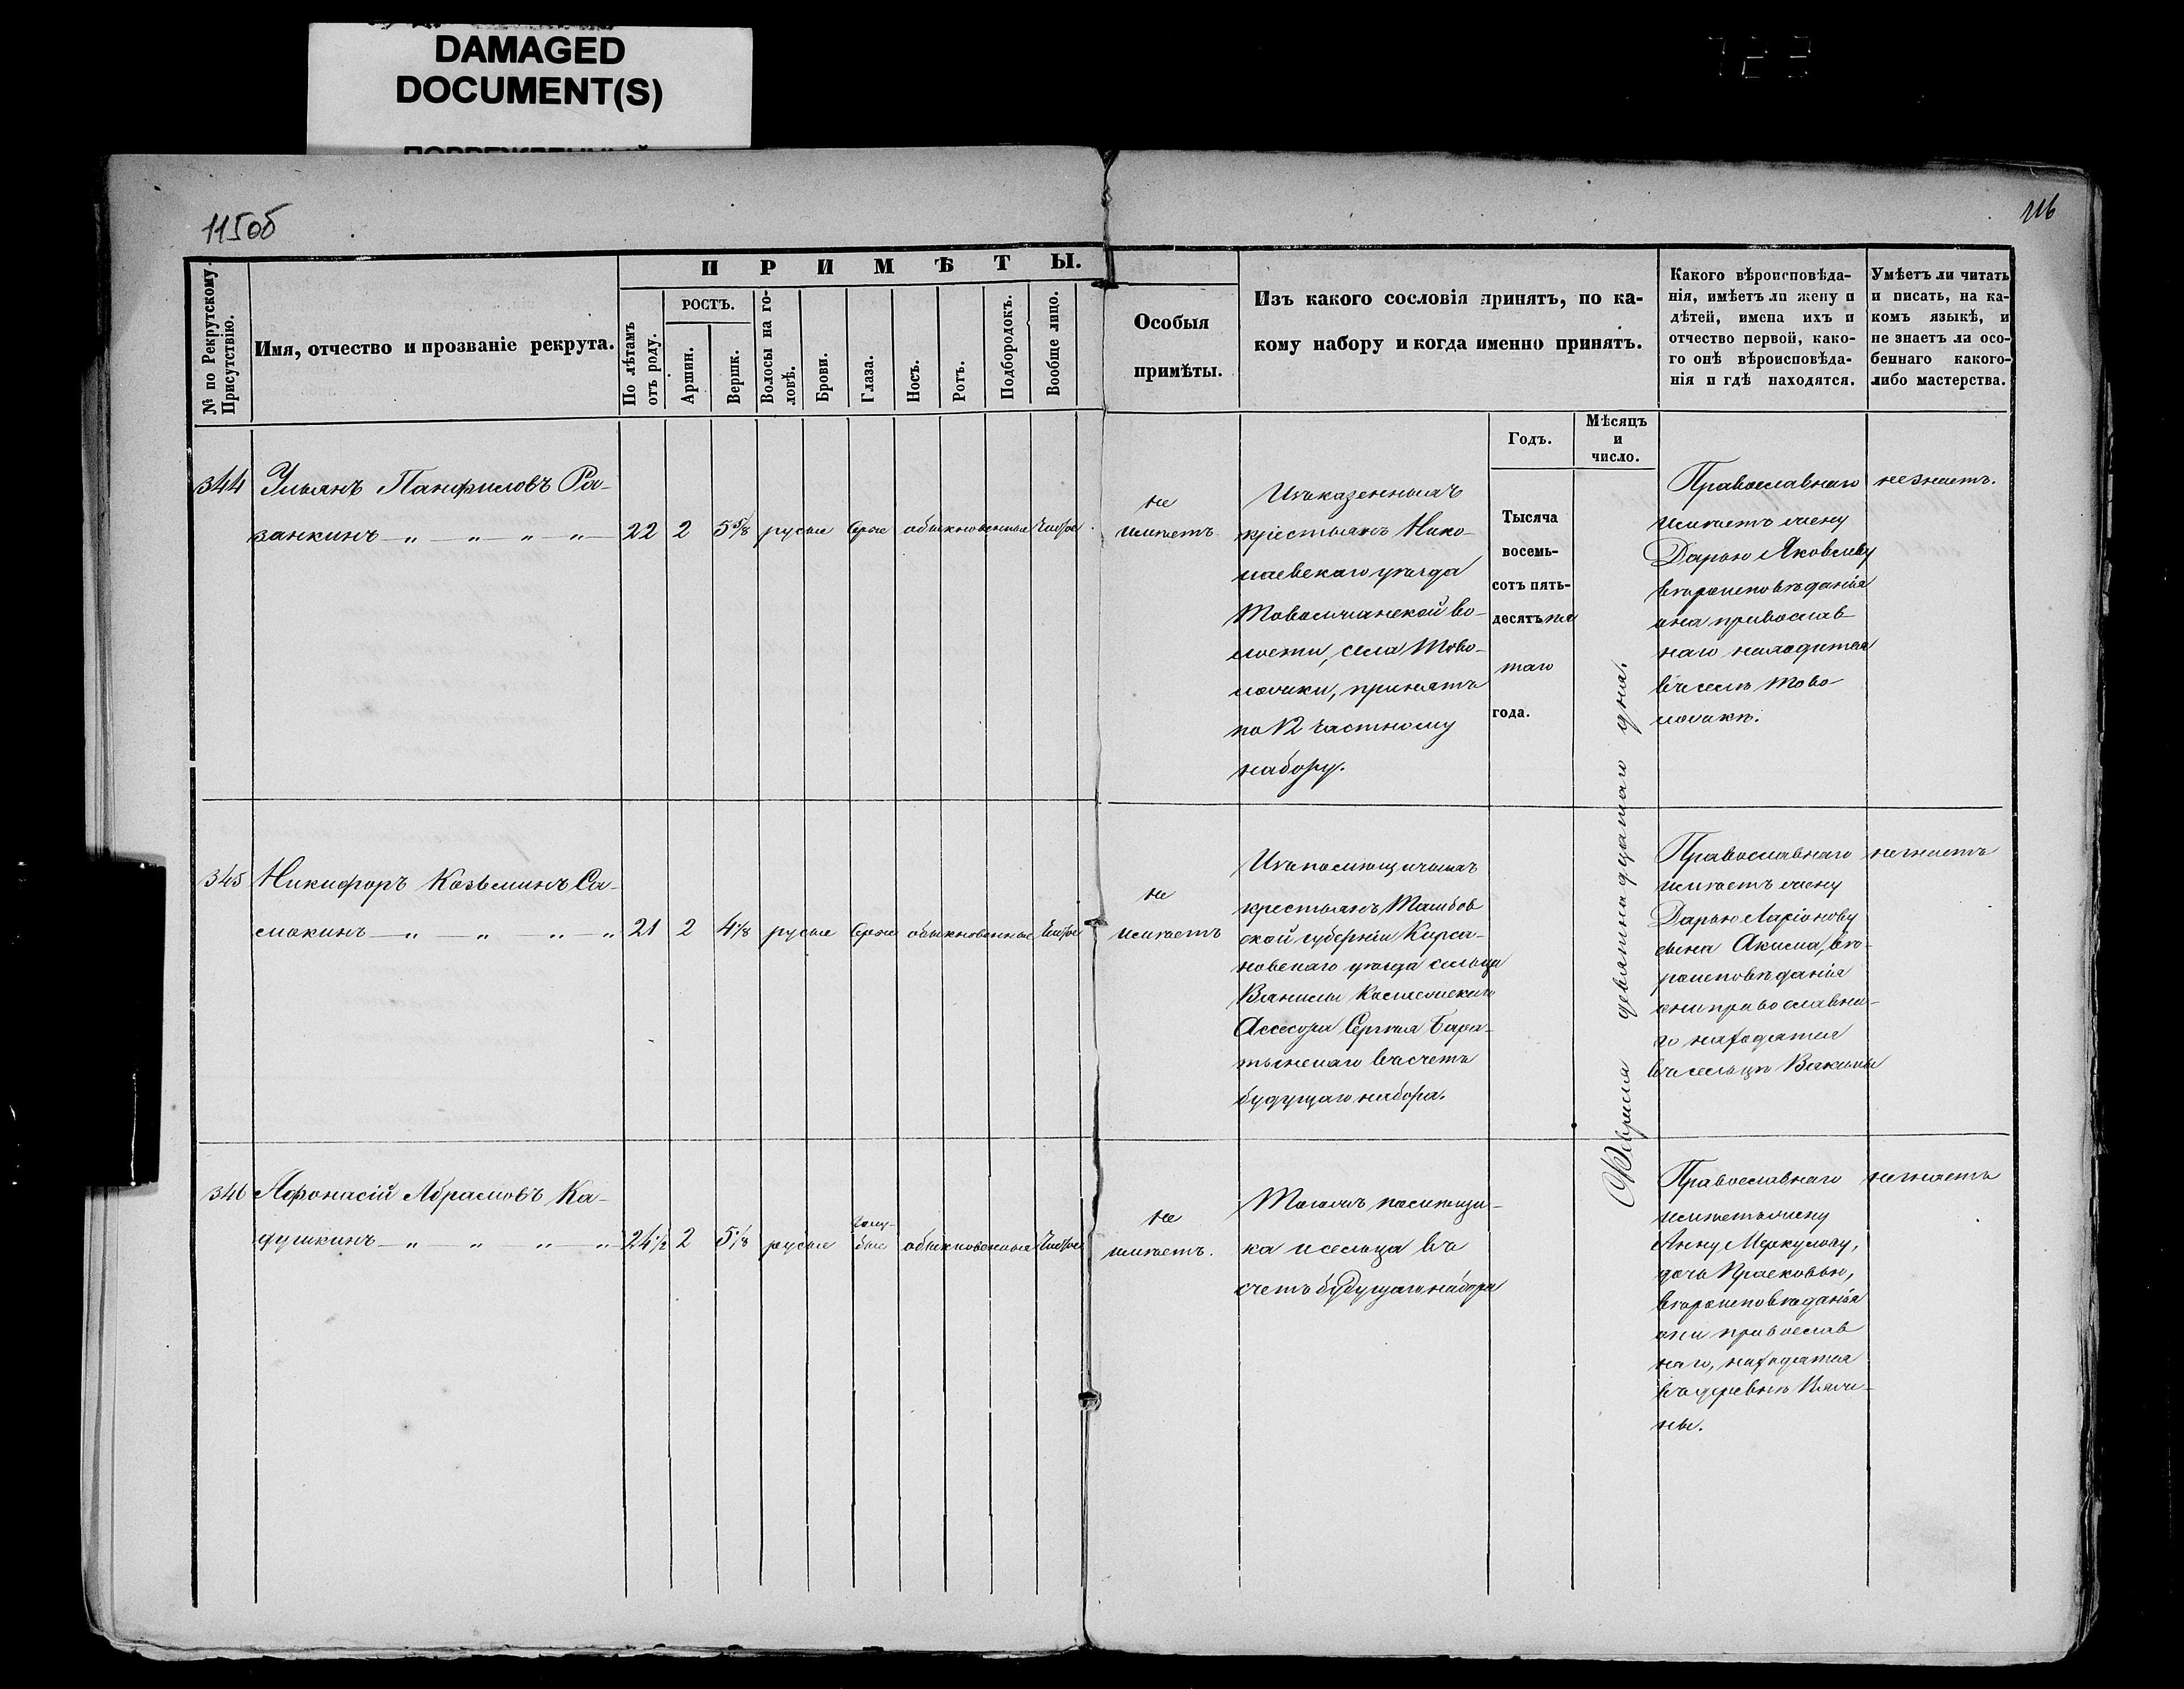 DAMAGED
DOCUMENT(S)
115об
116
№ по Рекрутскому
Присутствію.
Имя, отчество и прозваніе рекрута.
ПРИМѢТЫ.
По лѣтамъ
отъ роду.
РОСТЪ.
Аршин.
Вершк.
Волосы на го-
ловѣ.
Брови.
Глаза.
Носъ.
Ротъ.
Подбородокъ.
Вообще лицо.
Особыя
примѣты.
Изъ какого сословія принятъ, по ка-
кому набору и когда именно принятъ.
Годъ.
Мѣсяцъ
и
число.
Какого вѣроисповѣда-
нія, имѣетъ ли жену и
дѣтей, имена ихъ и
отчество первой, како-
го онѣ вѣроисповѣда-
нія и гдѣ находятся.
Умѣетъ ли читать
и писать, на ка-
комъ языкѣ, и
не знаетъ ли осо-
беннаго какого-
либо мастерства.
344
Ульянъ Панфиловъ Ра-
занкинъ — „ — „ — „ — „ —
22 2 5 5/8 русые Серые обыкновенные Чистое
не
имѣетъ
Изъ казенныхъ
крестьянъ Нико-
лаевскаго уѣзда
Товолжанской во-
лости, села Тово-
ложки, принятъ
по 12 частному
набору.
Тысяча
восемь-
сотъ пять-
десятъ пя
таго
года.
Февраля девятнадцатаго дня.
Православнаго
имѣетъ жену
Дарью Яковлеву
вѣроисповѣданія
она православ
наго находится
въ селѣ Тово
ложкѣ.
не знаетъ.
345
Никифоръ Козьминъ Са-
мокинъ — „ — „ — „ — „
21 2 4 1/8 русые Серые обыкновенные Чистое
не
имѣетъ
Изъ помѣщичьихъ
крестьянъ Тамбов
ской губерніи Кирса-
новскаго уѣзда сельца
Вяжли Коллежскаго
Ассесора Сергѣя Бара-
тынскаго въ счетъ
будущаго набора.
Православнаго
имѣетъ жену
Дарью Ларіонову
сына Акима, вѣ-
роисповѣданія
они православна-
го находятся
въ сельцѣ Вяжли
не знаетъ
346
Афонасій Абрамовъ Ка-
душкинъ — „ — „ — „ — „
24 1/2 2 5 1/8 русые голу-
бые обыкновенные Чистое
не
имѣетъ.
Тогожъ помѣщи-
ка и сельца въ
счетъ будущаго набора
Православнаго
имѣетъ жену
Анну Меркулову,
дочь Прасковью,
вѣроисповѣданія
они православ
наго, находятся
въ деревнѣ
не знаетъ